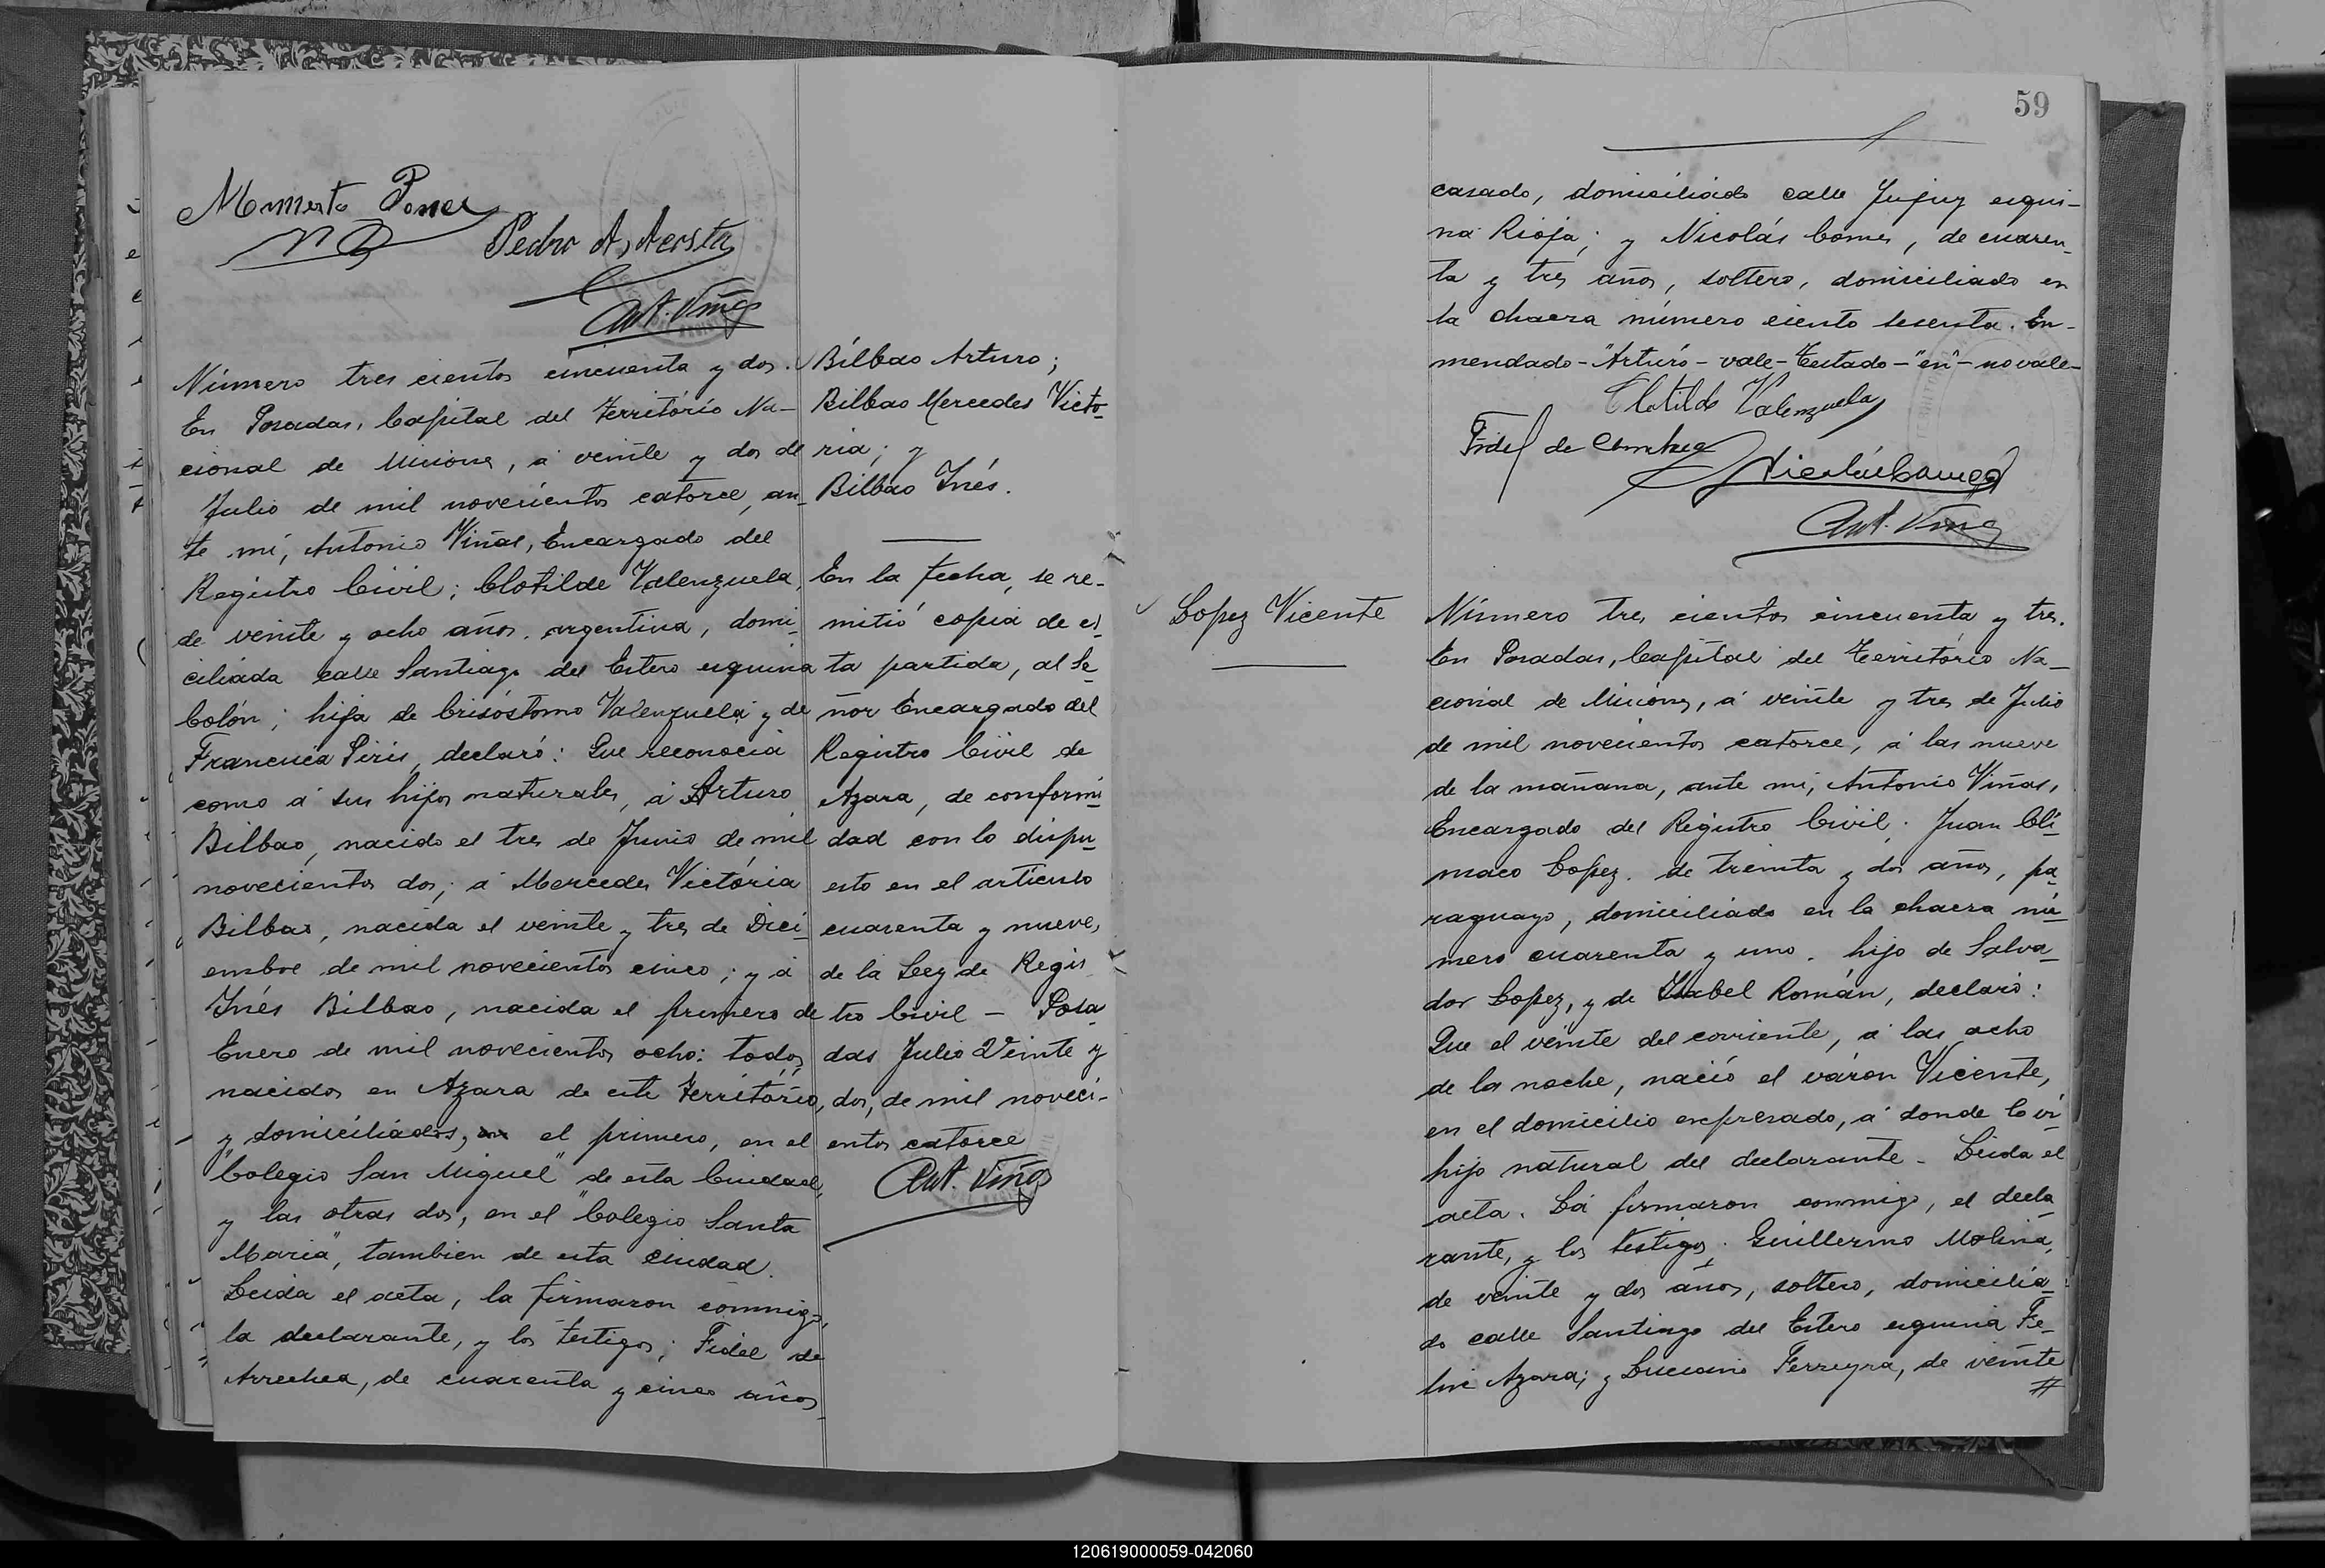 Pedro A. Acosta
Ant. Viñas
Número tres cientos cincuenta y dos.
En Posadas, Capital del Territorio Na-
cional de Misiones, á veinte y dos de
Julio de mil novecientos catorce, an-
te mí, Antonio Viñas, Encargado del
Registro Civil; Clotilde Valenzuela,
de veinte y ocho años, argentina, domi-
ciliada calle Santiago del Estero esquina
Colón; hija de Crisóstomo Valenzuela y de
Francisca Piris, declaró: Que reconocia
como á sus hijos naturales, á Arturo
Bilbao, nacido el tres de Junio de mil
novecientos dos; á Mercedes Victória
Bilbao, nacida el veinte y tres de Dici-
embre de mil novecientos cinco; y á
Inés Bilbao, nacida el primero de
Enero de mil novecientos ocho: todos
nacidos en Azara de este Território,
y domiciliados, en el primero, en el
"Colegio San Miguel" de esta Ciudad,
y las otras dos, en el "Colegio Santa
Maria", tambien de esta ciudad.
Leida el acta, la firmaron conmigo,
la declarante, y los testigos; Fidel de
Arrechea, de cuarenta y cinco años,
Bilbao Arturo;
Bilbao Mercedes Victo-
ria; y
Bilbao Inés.
En la fecha, se re-
mitió copia de es-
ta partida, al Se-
ñor Encargado del
Registro Civil de
Azara, de conformi-
dad con lo dispu-
esto en el artículo
cuarenta y nueve,
de la Ley de Regis
tro Civil - Posa-
das Julio Veinte y
dos, de mil noveci-
entos catorce
Ant. Viñas
59
casado, domiciliado calle Jujuy esqui-
na Rioja; y Nicolás Gomes, de cuaren-
ta y tres años, soltero, domiciliado en
la chacra número ciento sesenta. En-
mendado-"Arturo-vale-Testado-"en"-no vale-
Clotilde Valenzuela
Fidel de Arrechea
Ant. Viñas
Lopez Vicente
Número tres cientos cincuenta y tres.
En Posadas, Capital del Território Na-
cional de Misiones, á veinte y tres de Julio
de mil novecientos catorce, á las nueve
de la mañana, ante mí, Antonio Viñas,
Encargado del Registro Civil; Juan Clí-
maco Lopez, de treinta y dos años, pa-
raguayo, domiciliado en la chacra nú-
mero cuarenta y uno, hijo de Salva-
dor Lopez, y de Isabel Román, declaró:
Que el veinte del corriente, á las ocho
de la noche, nació el váron Vicente,
en el domicilio expresado, á donde lo ví
hijo natural del declarante. Leida el
acta. La firmaron conmigo, el decla-
rante, y los testigos: Guillermo Molina,
de veinte y dos años, soltero, domicilia-
do calle Santiago del Estero esquina Fe-
lix Azara; y Luciano Ferreyra, de veinte
#
120619000059-042060